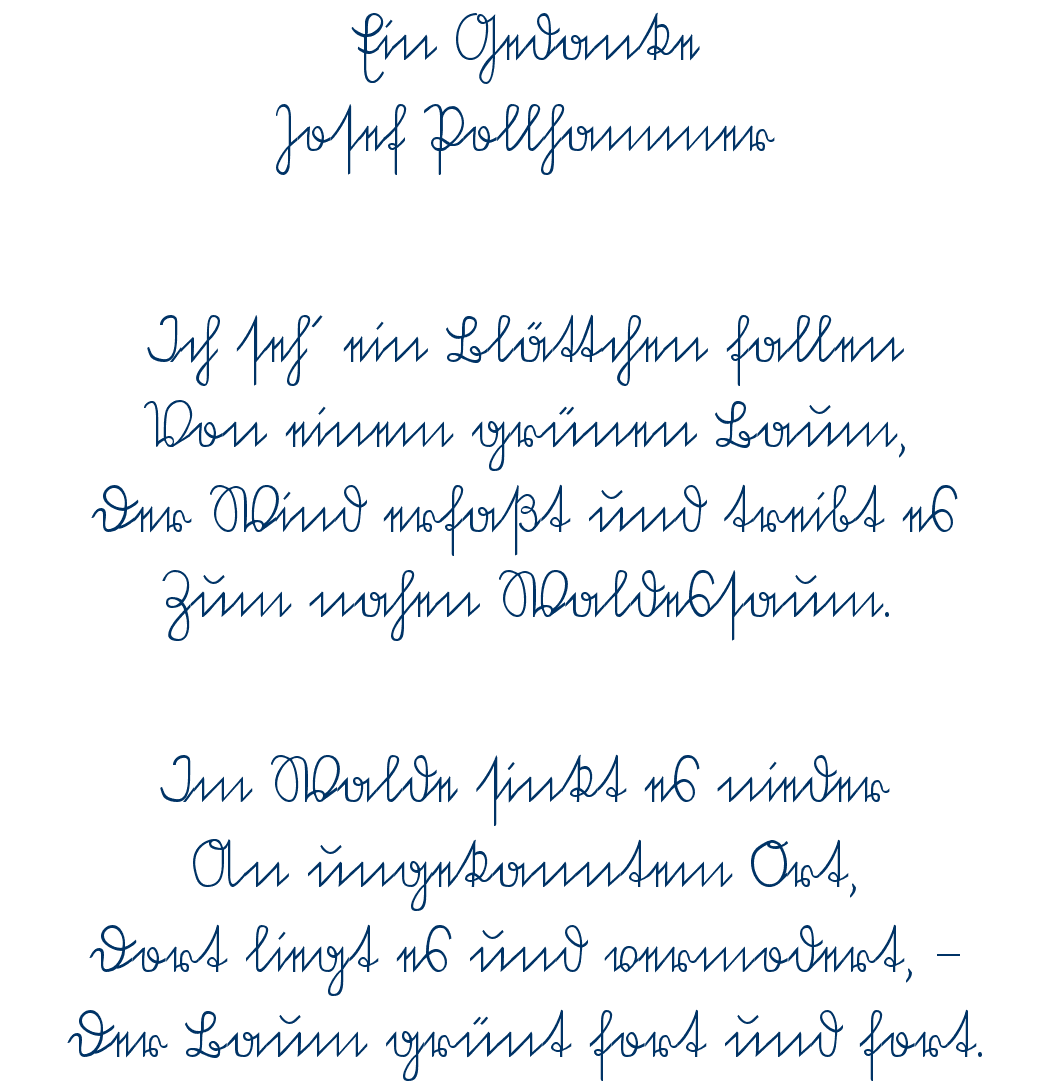 Ein Gedanke
Josef Pollhammer
Ich seh´ ein Blättchen fallen
Von einem grünen Baum,
Der Wind erfaßt und treibt es
Zum nahen Waldessaum.
Im Walde sinkt es nieder
An ungekanntem Ort,
Dort liegt es und vermodert, –
Der Baum grünt fort und fort.